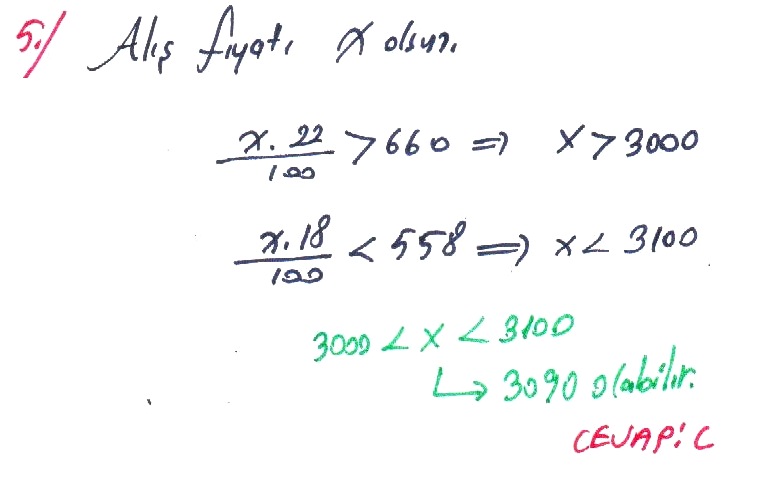 5./ Alış fiyatı x olsun.
x. 22 / 100 > 660 ⇒ x > 3000
x. 18 / 100 < 558 ⇒ x < 3100
3000 < x < 3100
↳ 3090 olabilir.
CEVAP: C